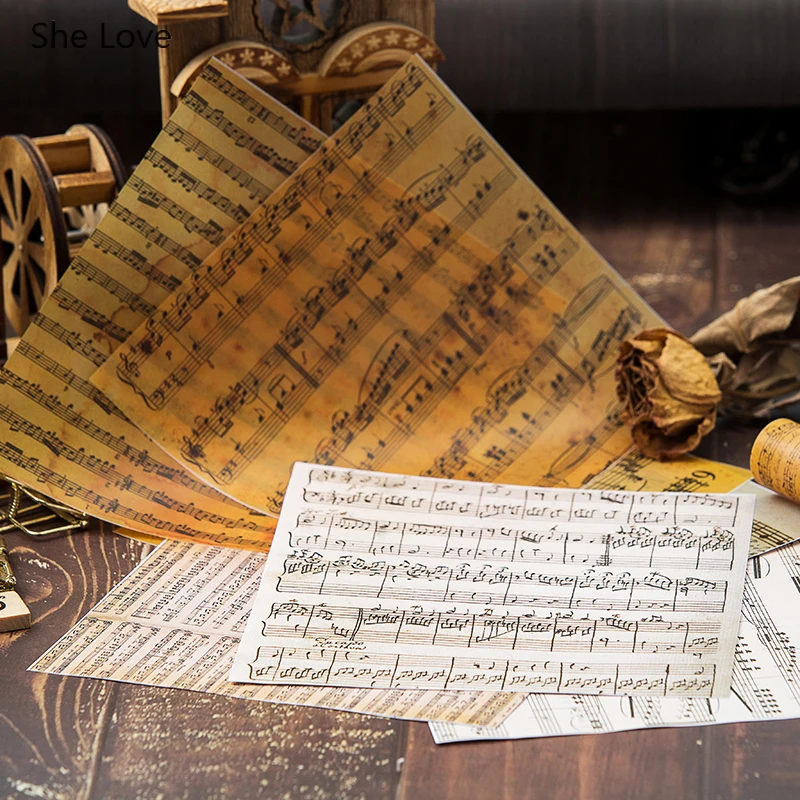 She Love